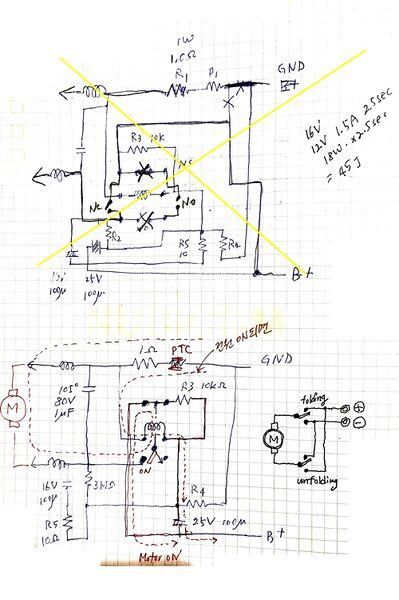 1W
1.0Ω
R1
P1
GND
16V
12V 1.5A 2.5sec
18W × 2.5sec
= 45J
R3 10k
NC
NC
NO
R2
R5
10
R4
100µ
25V
100µ
B+
전원 ON되면
1Ω
PTC
GND
105°
80V
1µF
R3 10kΩ
M
folding
⊕
⊖
M
unfolding
ON
16V
100µ
3MΩ
R4
R5
10Ω
25V 100µ
B+
Motor ON